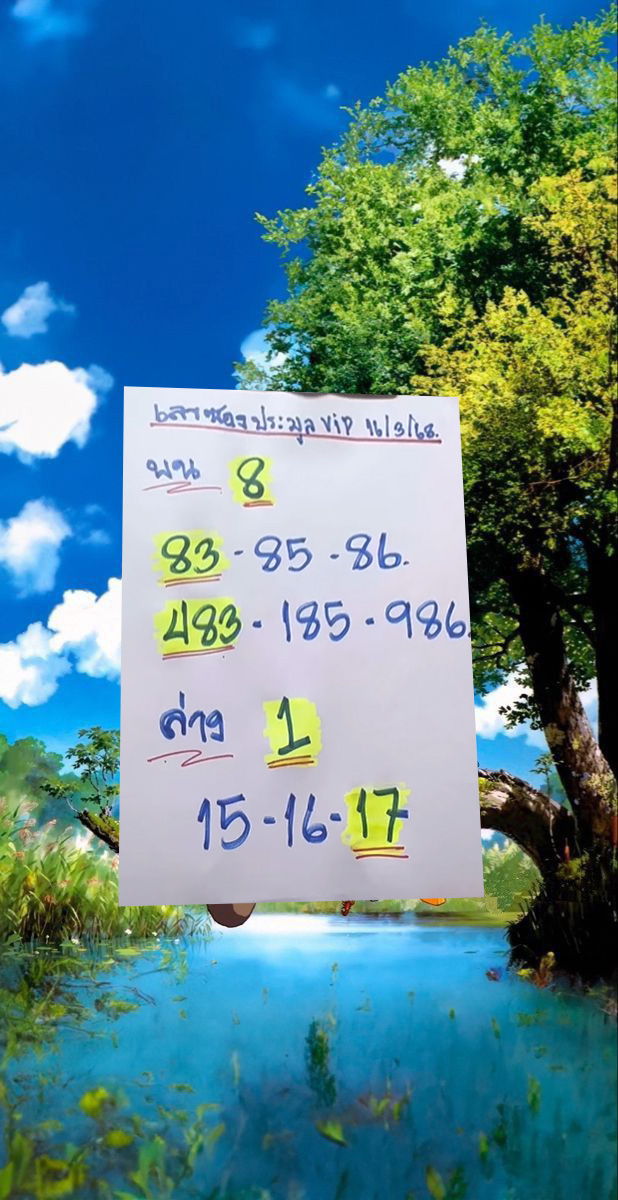 เลขซองประมูล ViP 16/3/68.
บน 8
83 - 85 - 86.
483 - 185 - 986.
ล่าง 1
15 - 16 - 17